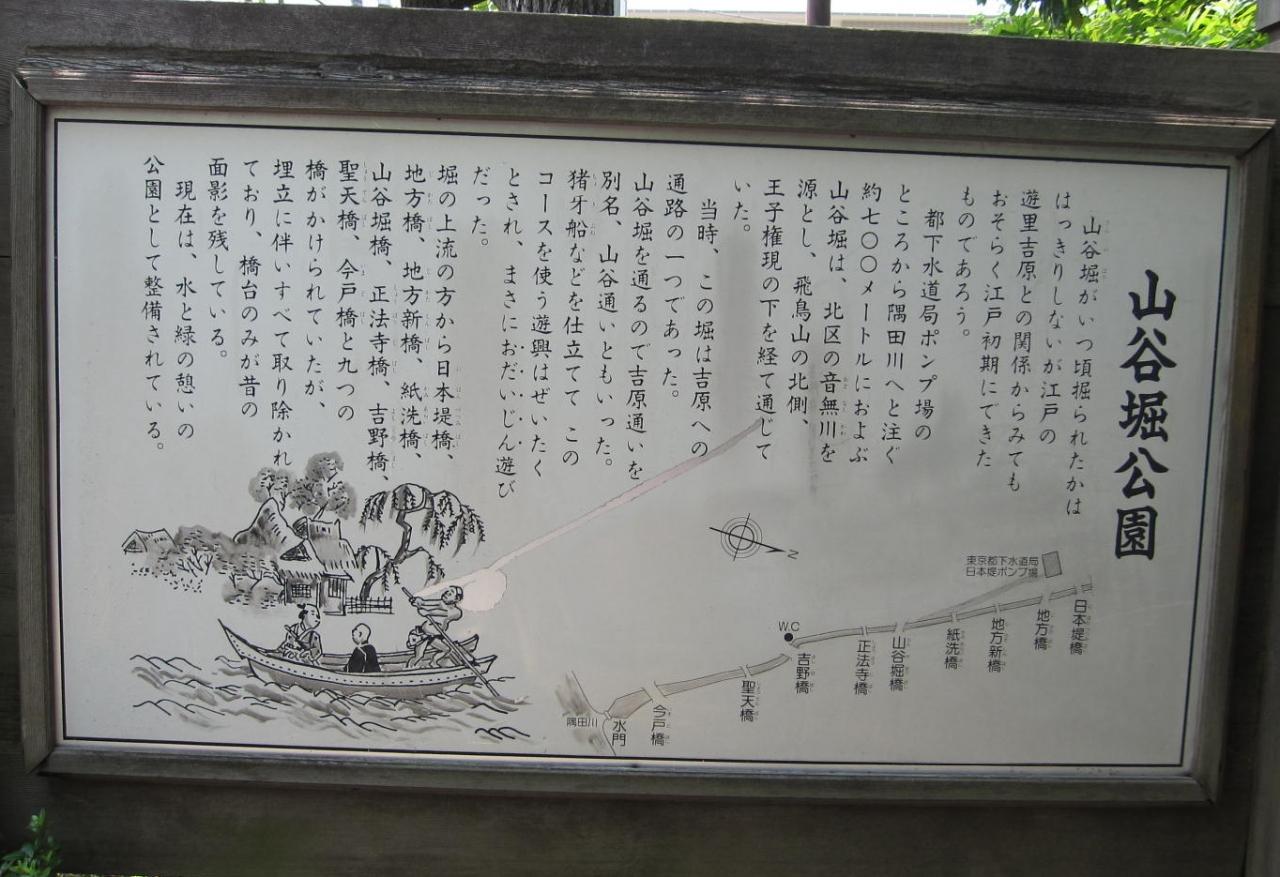 山谷堀公園
山谷堀がいつ頃掘られたかは
はっきりしないが江戸の
遊里吉原との関係からみても
おそらく江戸初期にできた
ものであろう。
都下水道局ポンプ場の
ところから隅田川へと注ぐ
約七〇〇メートルにおよぶ
山谷堀は、北区の音無川を
源とし、飛鳥山の北側、
王子権現の下を経て通じて
いた。
当時、この堀は吉原への
通路の一つであった。
山谷堀を通るので吉原通いを
別名、山谷通いともいった。
猪牙船などを仕立てて この
コースを使う遊興はぜいたく
とされ、まさにおだいじん遊び
だった。
堀の上流の方から日本堤橋、
地方橋、地方新橋、紙洗橋、
山谷堀橋、正法寺橋、吉野橋、
聖天橋、今戸橋と九つの
橋がかけられていたが、
埋立に伴いすべて取り除かれ
ており、橋台のみが昔の
面影を残している。
現在は、水と緑の憩いの
公園として整備されている。
N
東京都下水道局
日本堤ポンプ場
日本堤橋
地方橋
地方新橋
紙洗橋
山谷堀橋
正法寺橋
W.C
吉野橋
聖天橋
今戸橋
水門
隅田川